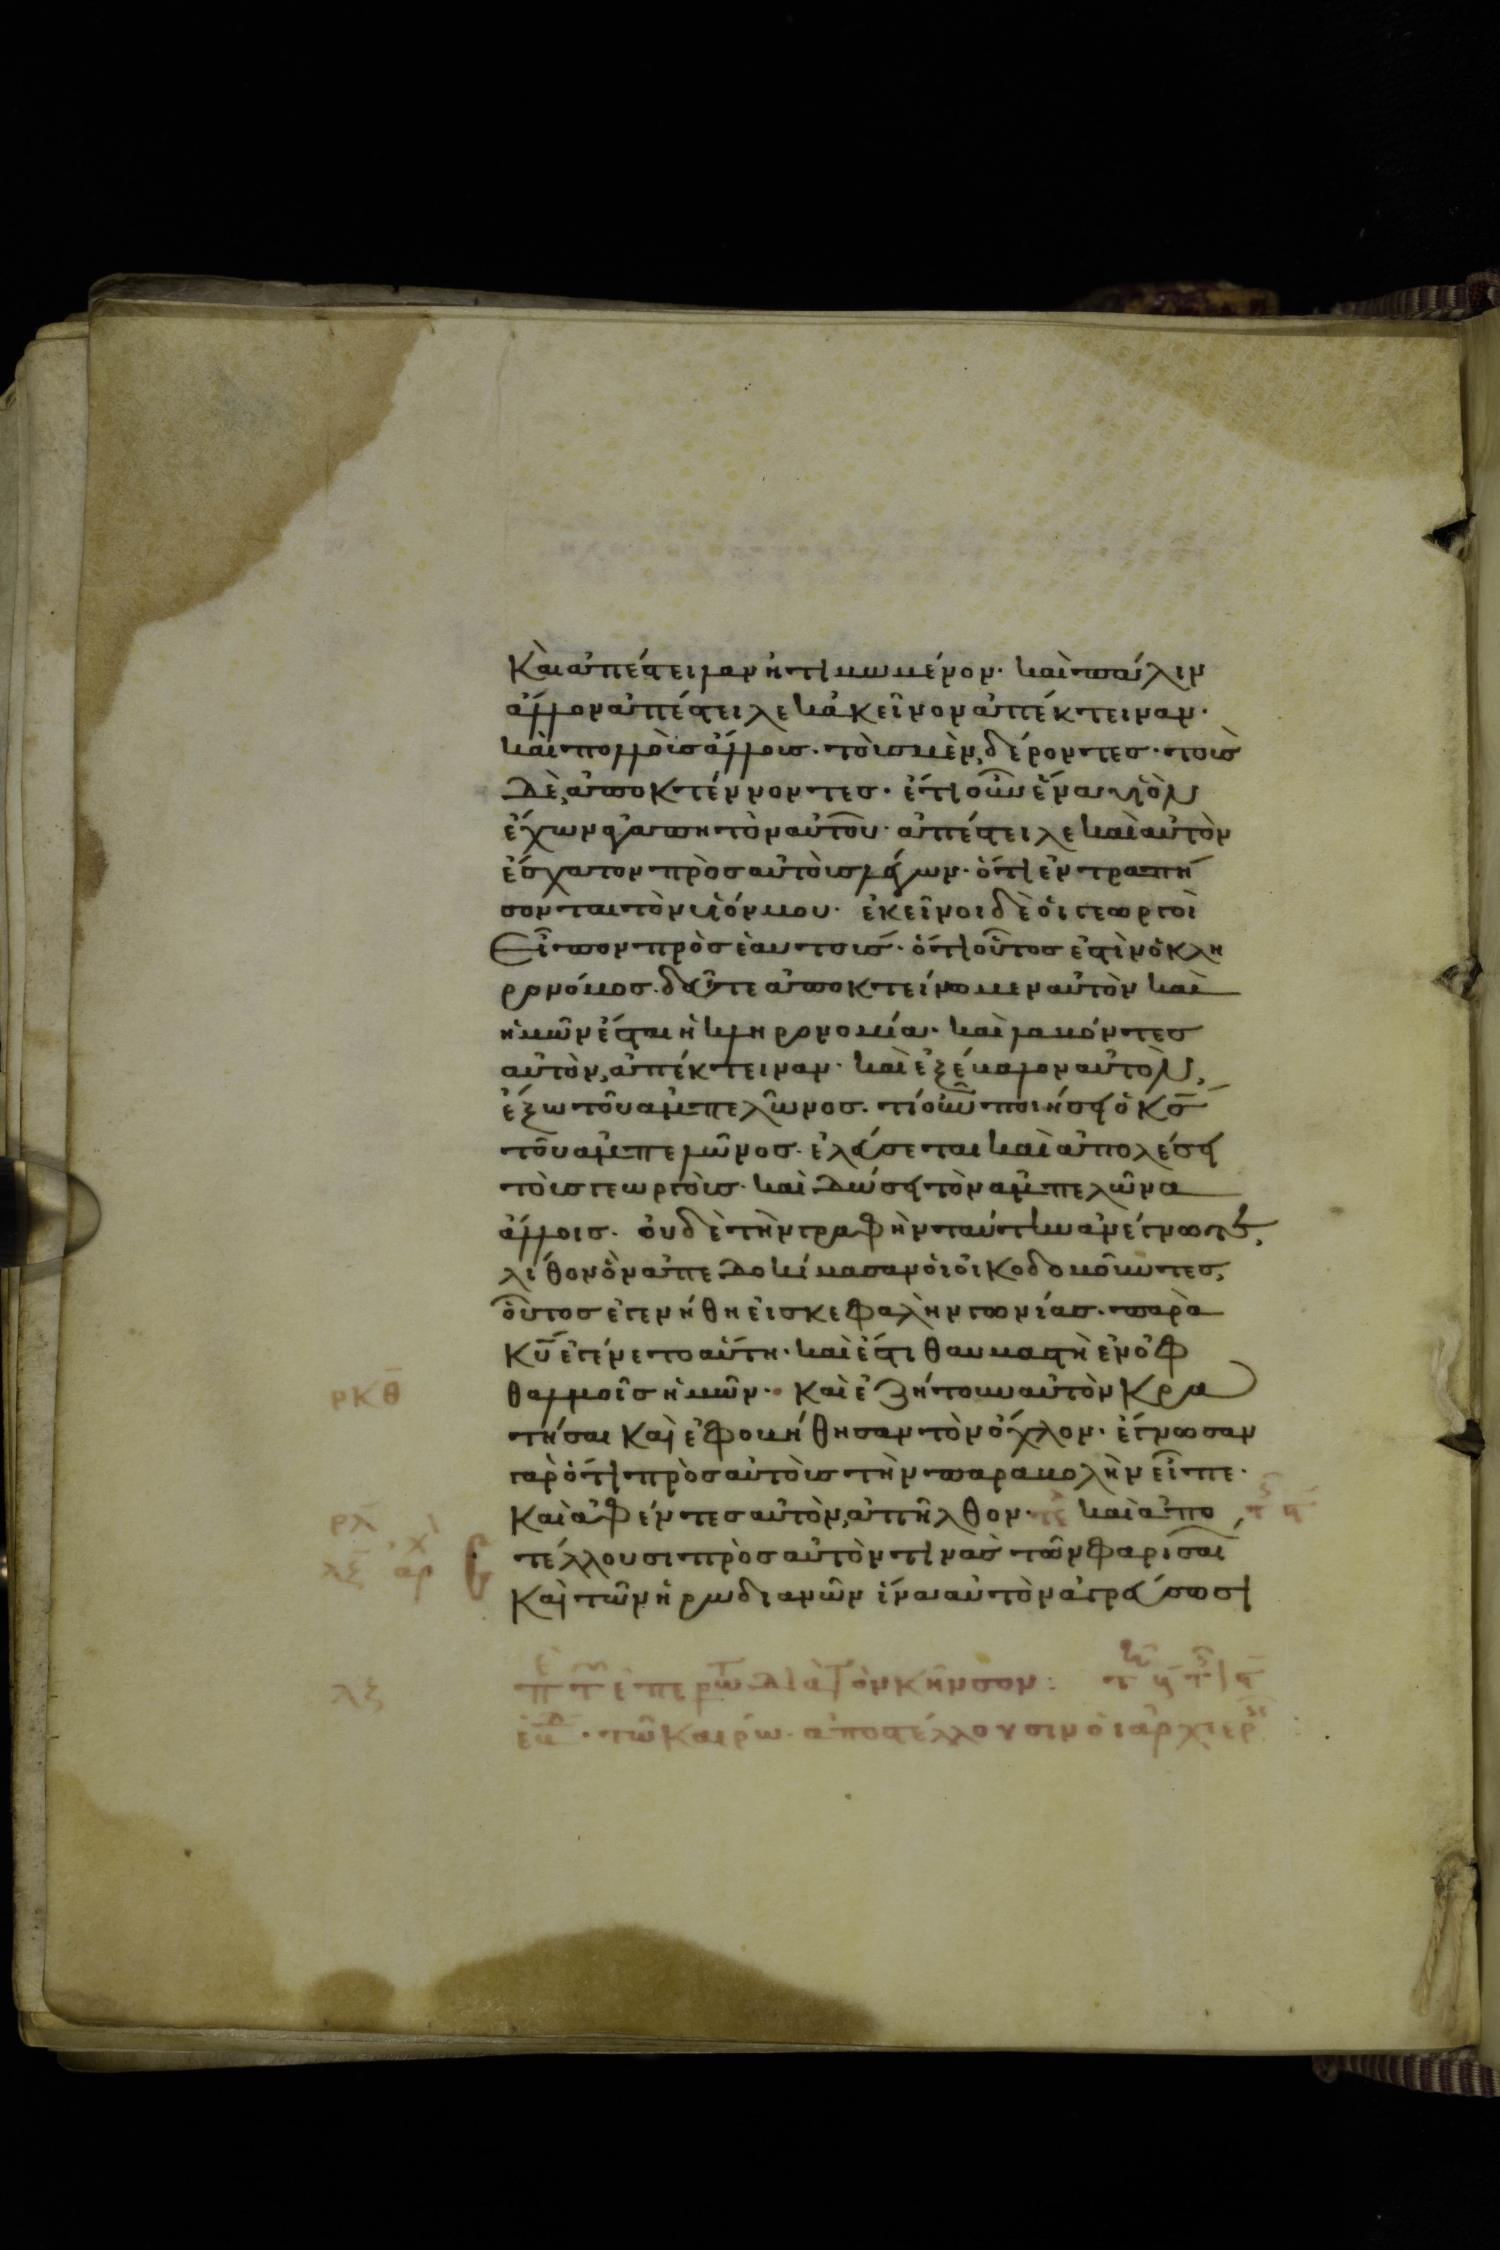 Καὶ ἀπέστειλαν ἠτιμωμένον· καὶ πάλιν
ἄλλον ἀπέστειλε κἀκεῖνον ἀπέκτειναν·
καὶ πολλοὺς ἄλλους· τοὺς μὲν, δέροντες· τοὺς
δὲ, ἀποκτέννοντες· ἔτι οὖν ἕνα υἱὸν
ἔχων ἀγαπητὸν αὐτοῦ· ἀπέστειλε καὶ αὐτὸν
ἔσχατον πρὸς αὐτοὺς λέγων· ὅτι ἐντραπή
σονται τὸν υἱόν μου· ἐκεῖνοι δὲ οἱ γεωργοὶ
Εἶπον πρὸς ἑαυτούς· ὅτι οὗτός ἐστιν ὁ κλη
ρονόμος· δεῦτε ἀποκτείνωμεν αὐτὸν καὶ
ἡμῶν ἔσται ἡ κληρονομία· καὶ λαβόντες
αὐτὸν, ἀπέκτειναν· καὶ ἐξέβαλον αὐτὸν,
ἔξω τοῦ ἀμπελῶνος· τί οὖν ποιήσει ὁ κς
τοῦ ἀμπελῶνος· ἐλεύσεται καὶ ἀπολέσει
τοὺς γεωργοὺς· καὶ δώσει τὸν ἀμπελῶνα
ἄλλοις· οὐδὲ τὴν γραφὴν ταύτην ἀνέγνωτε,
λίθον ὃν ἀπεδοκίμασαν οἱ οἰκοδομοῦντες,
οὗτος ἐγενήθη εἰς κεφαλὴν γωνίας· παρὰ
κυ ἐγένετο αὕτη· καὶ ἔστι θαυμαστὴ ἐν ὀφ
ρκθ θαλμοῖς ἡμῶν· Καὶ ἐζήτουν αὐτὸν κρα
τῆσαι καὶ ἐφοβήθησαν τὸν ὄχλον· ἔγνωσαν
γὰρ ὅτι πρὸς αὐτοὺς τὴν παραβολὴν εἶπε·
ρλ Καὶ ἀφέντες αὐτὸν, ἀπῆλθον· τε καὶ ἀπο
λξ αρ τέλλουσι πρὸς αὐτὸν τινὰς τῶν φαρισαί
Καὶ τῶν ἡρωδιανῶν ἵνα αὐτὸν ἀγρεύσωσι
λξ ἐπερωτ διὰ τὸν κῆνσον:
τῶ καιρῶ· ἀποστέλλουσιν οἱ ἀρχιερ